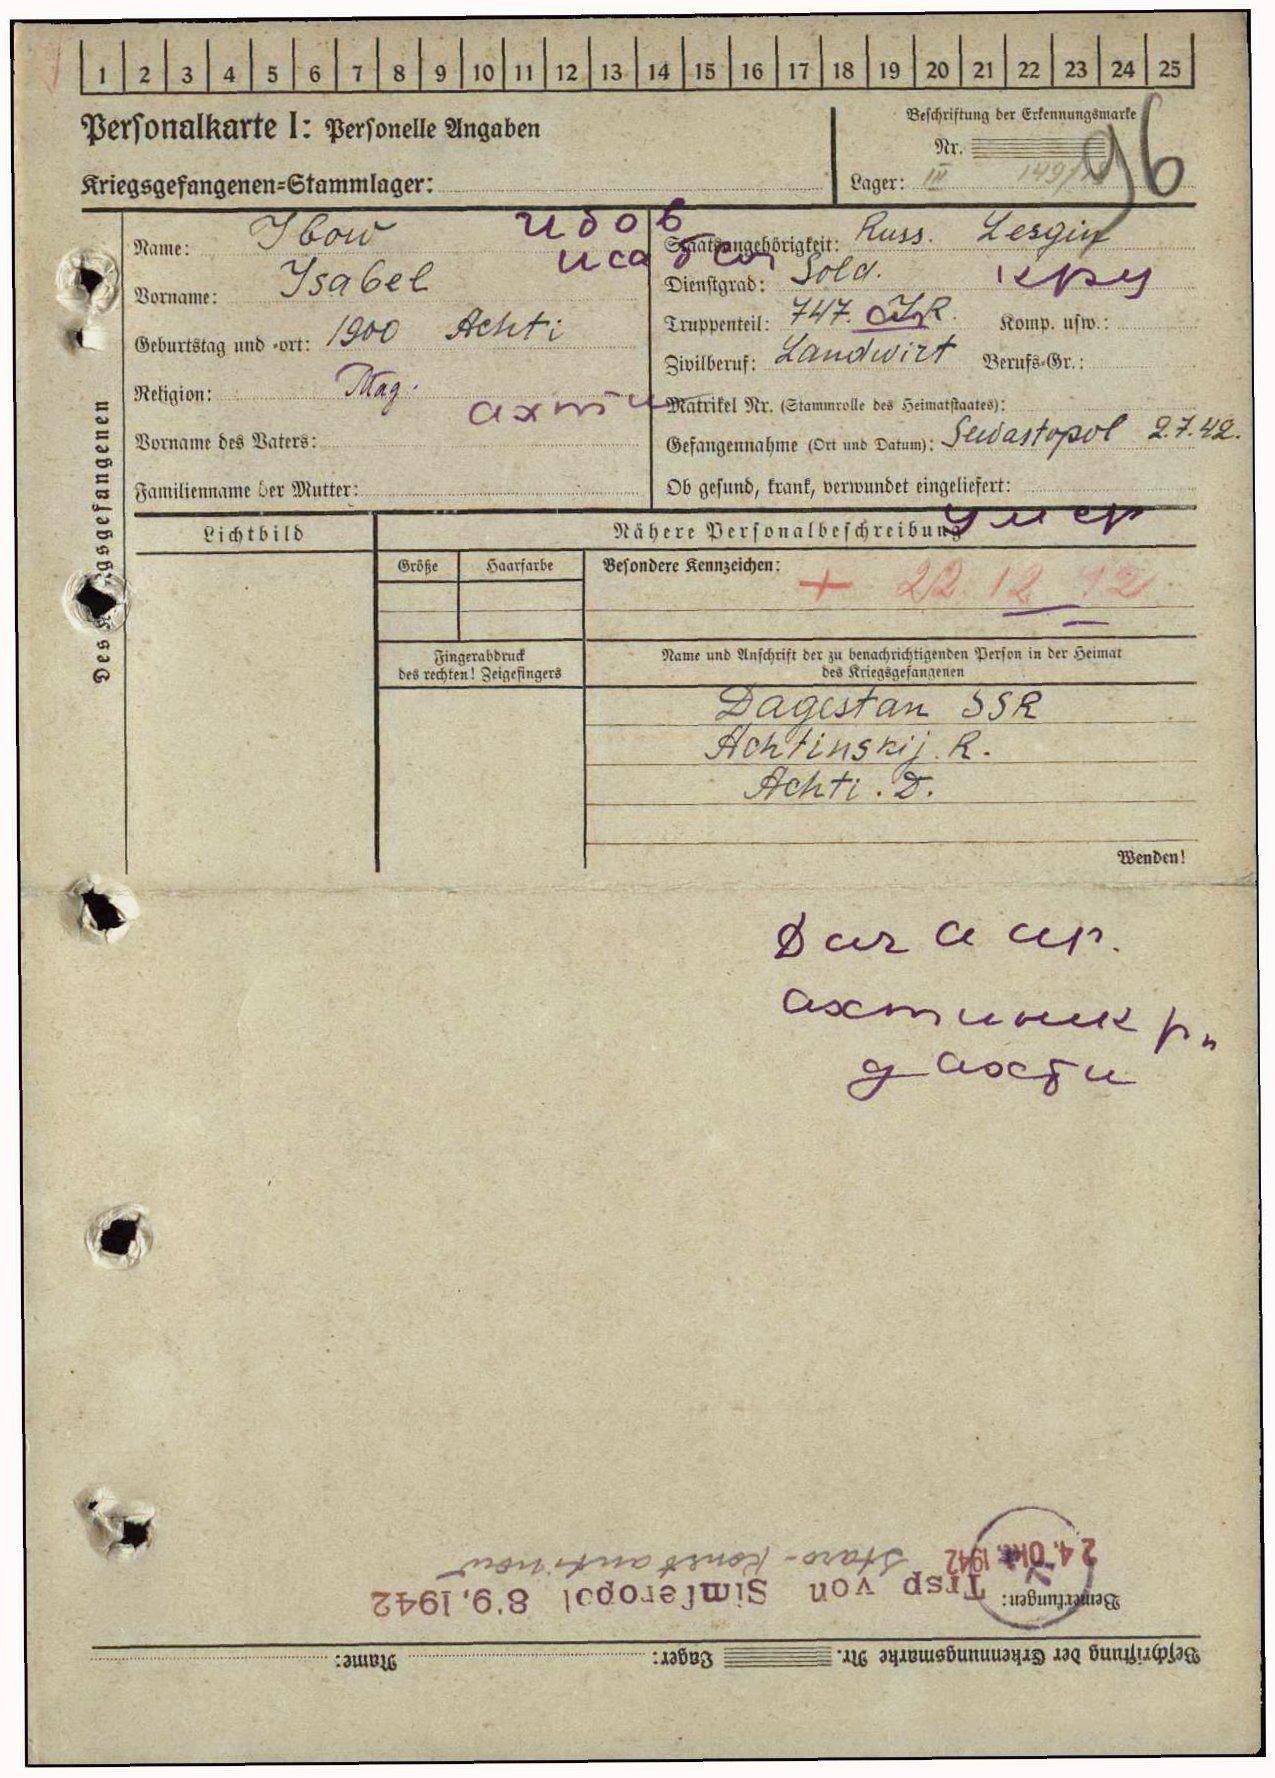 1 2 3 4 5 6 7 8 9 10 11 12 13 14 15 16 17 18 19 20 21 22 23 24 25
Personalkarte I: Personelle Angaben
Kriegsgefangenen=Stammlager:
Beschriftung der Erkennungsmarke
Nr.
Lager: III 149/
96
Des Kriegsgefangenen
Name: Ibow
идов
Vorname: Isabel
Geburtstag und -ort: 1900 Achti
Religion: Mag.
ахти
Vorname des Vaters:
Familienname der Mutter:
Staatsangehörigkeit: Russ. Lesgin
Dienstgrad: Sold.
Truppenteil: 747. Komp. usw.:
Zivilberuf: Landwirt Berufs=Gr.:
Matrikel Nr. (Stammrolle des Heimatstaates):
Gefangennahme (Ort und Datum): Sewastopol 2.7.42.
Ob gesund, krank, verwundet eingeliefert:
умер
Lichtbild
Nähere Personalbeschreibung
Größe Haarfarbe
Besondere Kennzeichen: + 22.12.42
Fingerabdruck
des rechten! Zeigefingers
Name und Anschrift der zu benachrichtigenden Person in der Heimat
des Kriegsgefangenen
Dagestan SSR
Achtinskij. R.
Achti. D.
Wenden!
ахтиник р-н
д ахти
Beschriftung der Erkennungsmarke Nr. Lager: Name:
Bemerkungen: Trsp von Simferopol 8.9.1942
24. Okt. 1942 Staro-Konstantinow